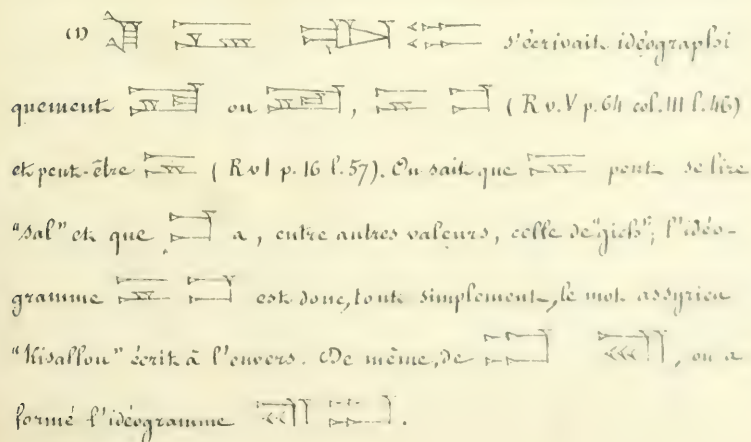 (1) s'écrivait idéographi
quement ou , ( R v. V p. 64 col. III l. 46)
et peut-être ( R v I p. 16 l. 57). On sait que peut se lire
"sal" et que a, entre autres valeurs, celle de "gich"; l'idéo-
gramme est donc, tout simplement, le mot assyrien
"Kisallou" écrit à l'envers. De même, de , on a
formé l'idéogramme .